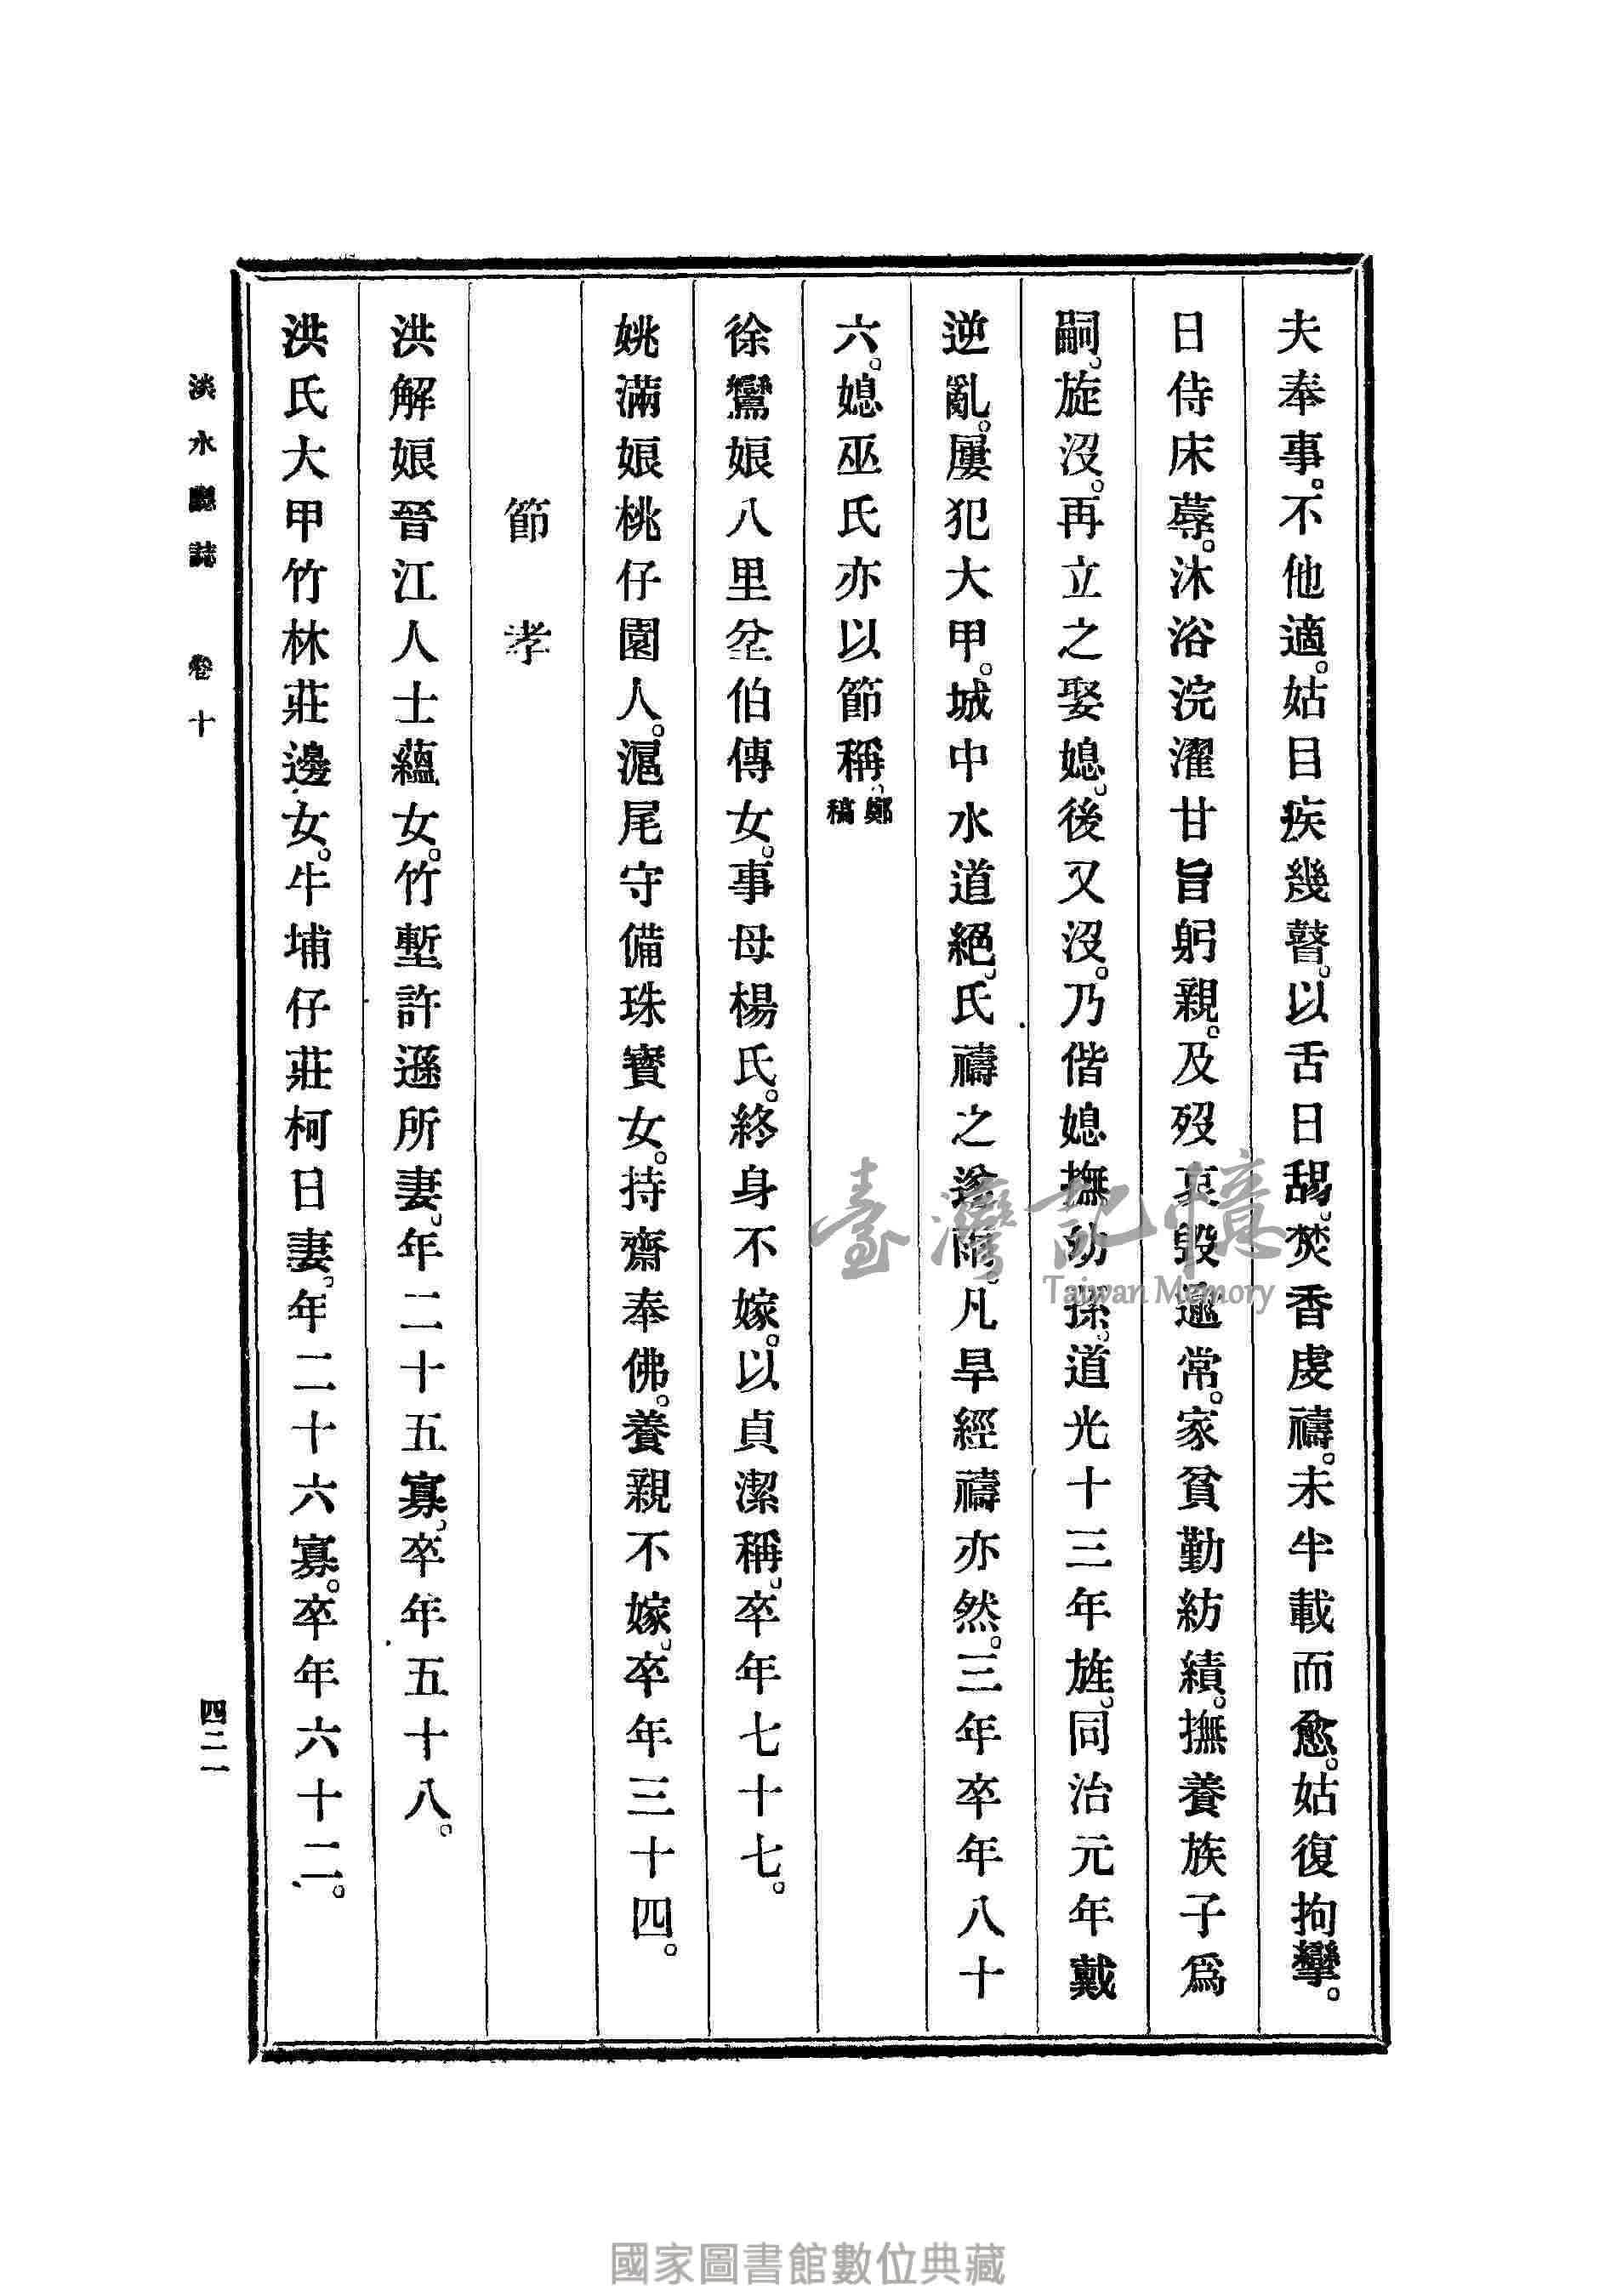 夫奉事。不他適。姑目疾幾瞽。以舌日舐。焚香虔禱。未半載而愈。姑復拘攣。
日侍床蓐。沐浴浣濯甘旨躬親。及歿哀毀逾常。家貧勤紡績。撫養族子爲
嗣。旋沒。再立之娶媳。後又沒。乃偕媳撫幼孫。道光十三年旌。同治元年戴
逆亂。屢犯大甲。城中水道絕。氏禱之遂雨。凡旱經禱亦然。三年卒年八十
六。媳巫氏亦以節稱。鄭稿
徐鸞娘八里坌伯傳女。事母楊氏。終身不嫁。以貞潔稱。卒年七十七。
姚滿娘桃仔園人。滬尾守備珠寶女。持齋奉佛。養親不嫁。卒年三十四。
節孝
洪解娘晉江人士蘊女。竹塹許遜所妻。年二十五寡。卒年五十八。
洪氏大甲竹林莊邊女。牛埔仔莊柯日妻。年二十六寡。卒年六十二。
淡水廳誌 卷十
四二一
臺灣記憶
Taiwan Memory
國家圖書館數位典藏